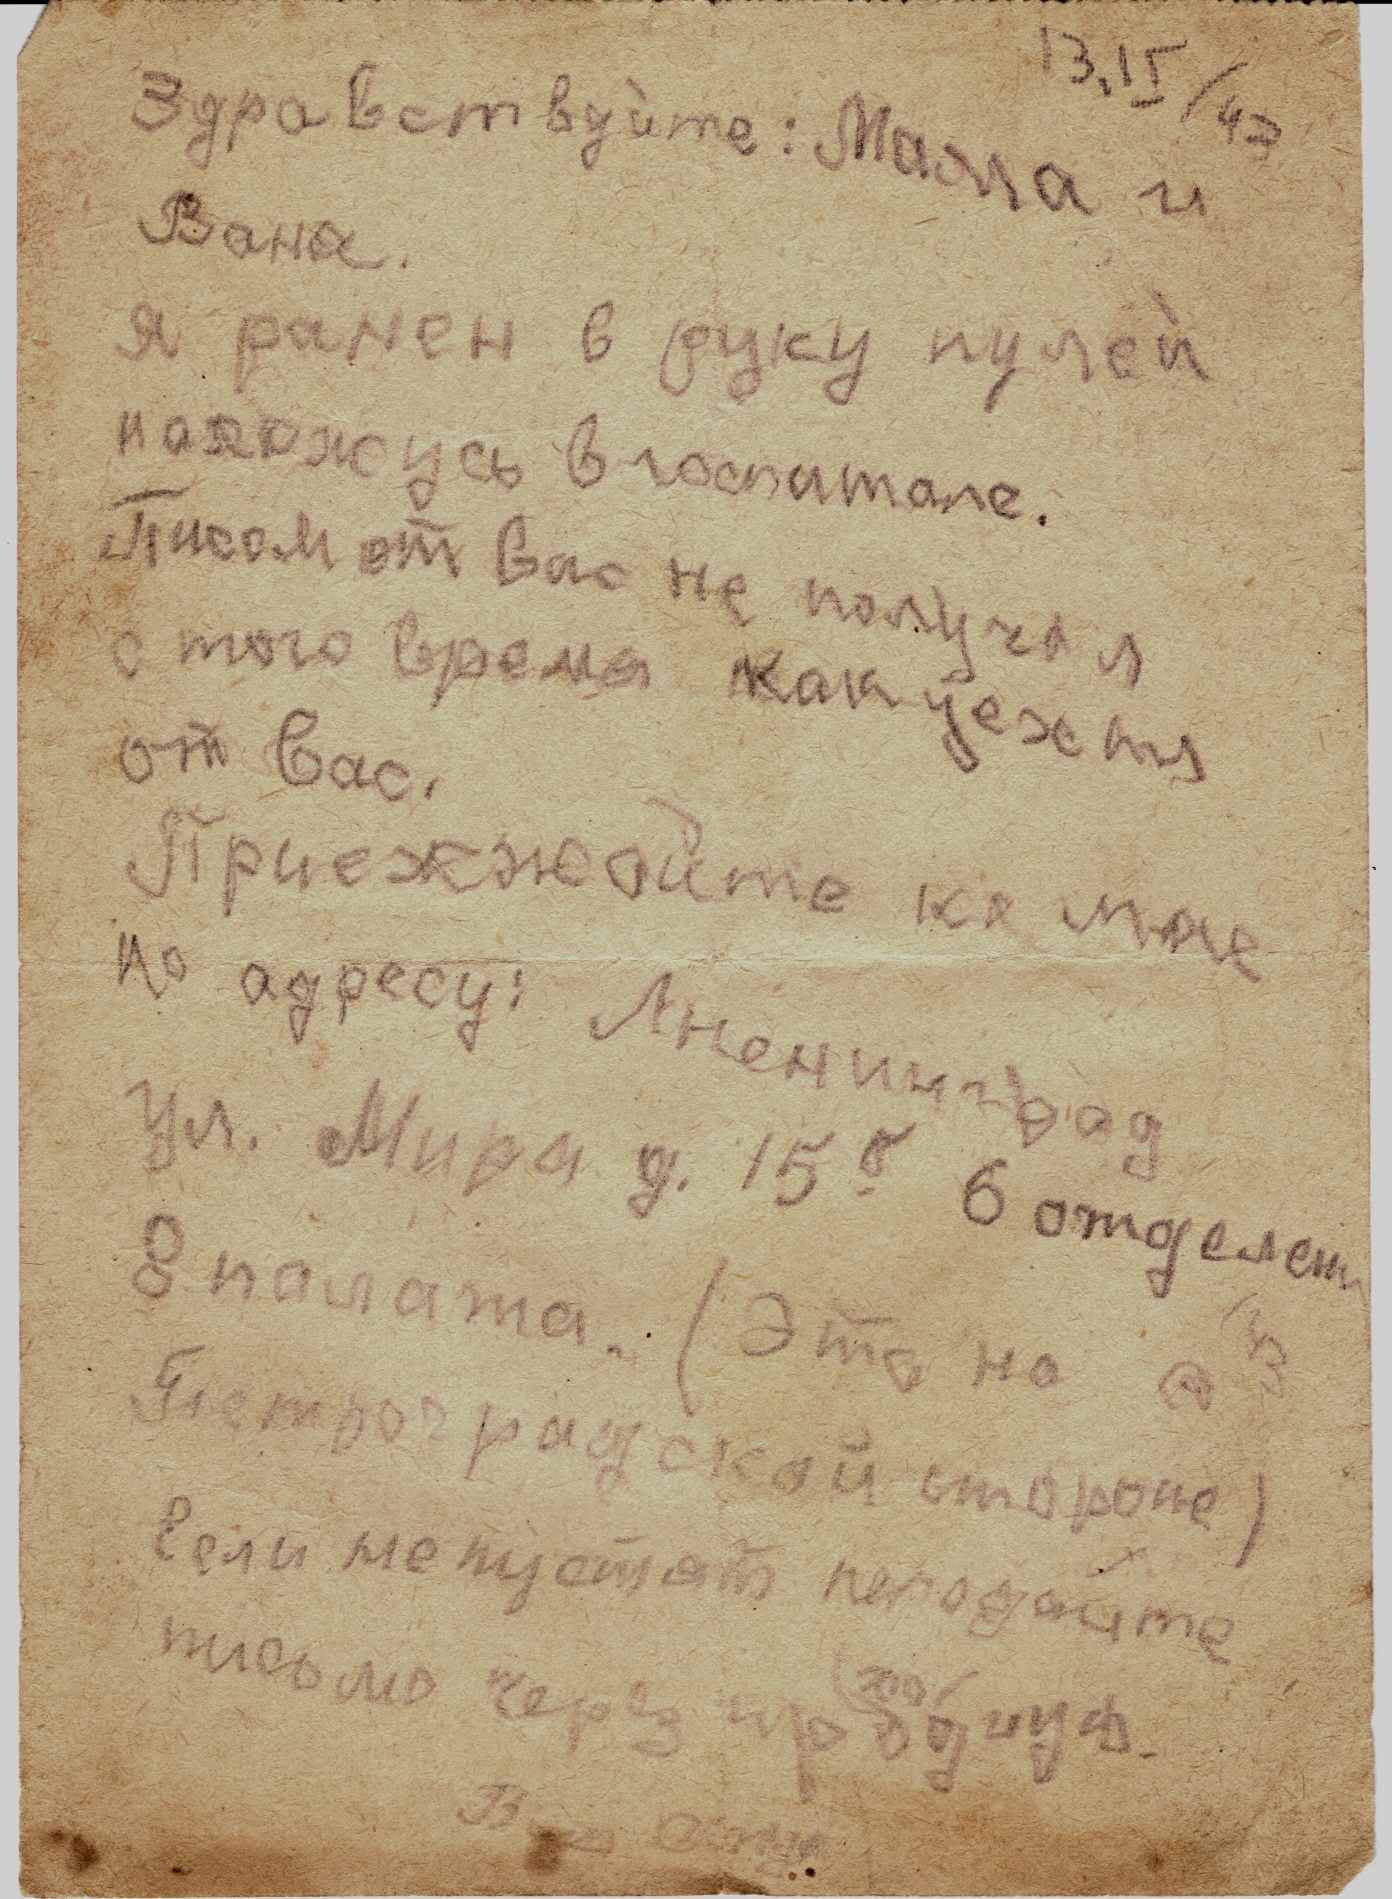 13.II/43
Здравствуйте: Мама и
Ваня.
Я ранен в руку пулей
нахожусь в госпитале.
Писем от вас не получал
с того время как уехал
от вас.
Приежжайте ко мне
по адресу: Лненинград
ул. Мира д. 15 6 отделен
8 палата. (Это на
Петроградской стороне)
Если не пустят передайте
письмо через проходную.